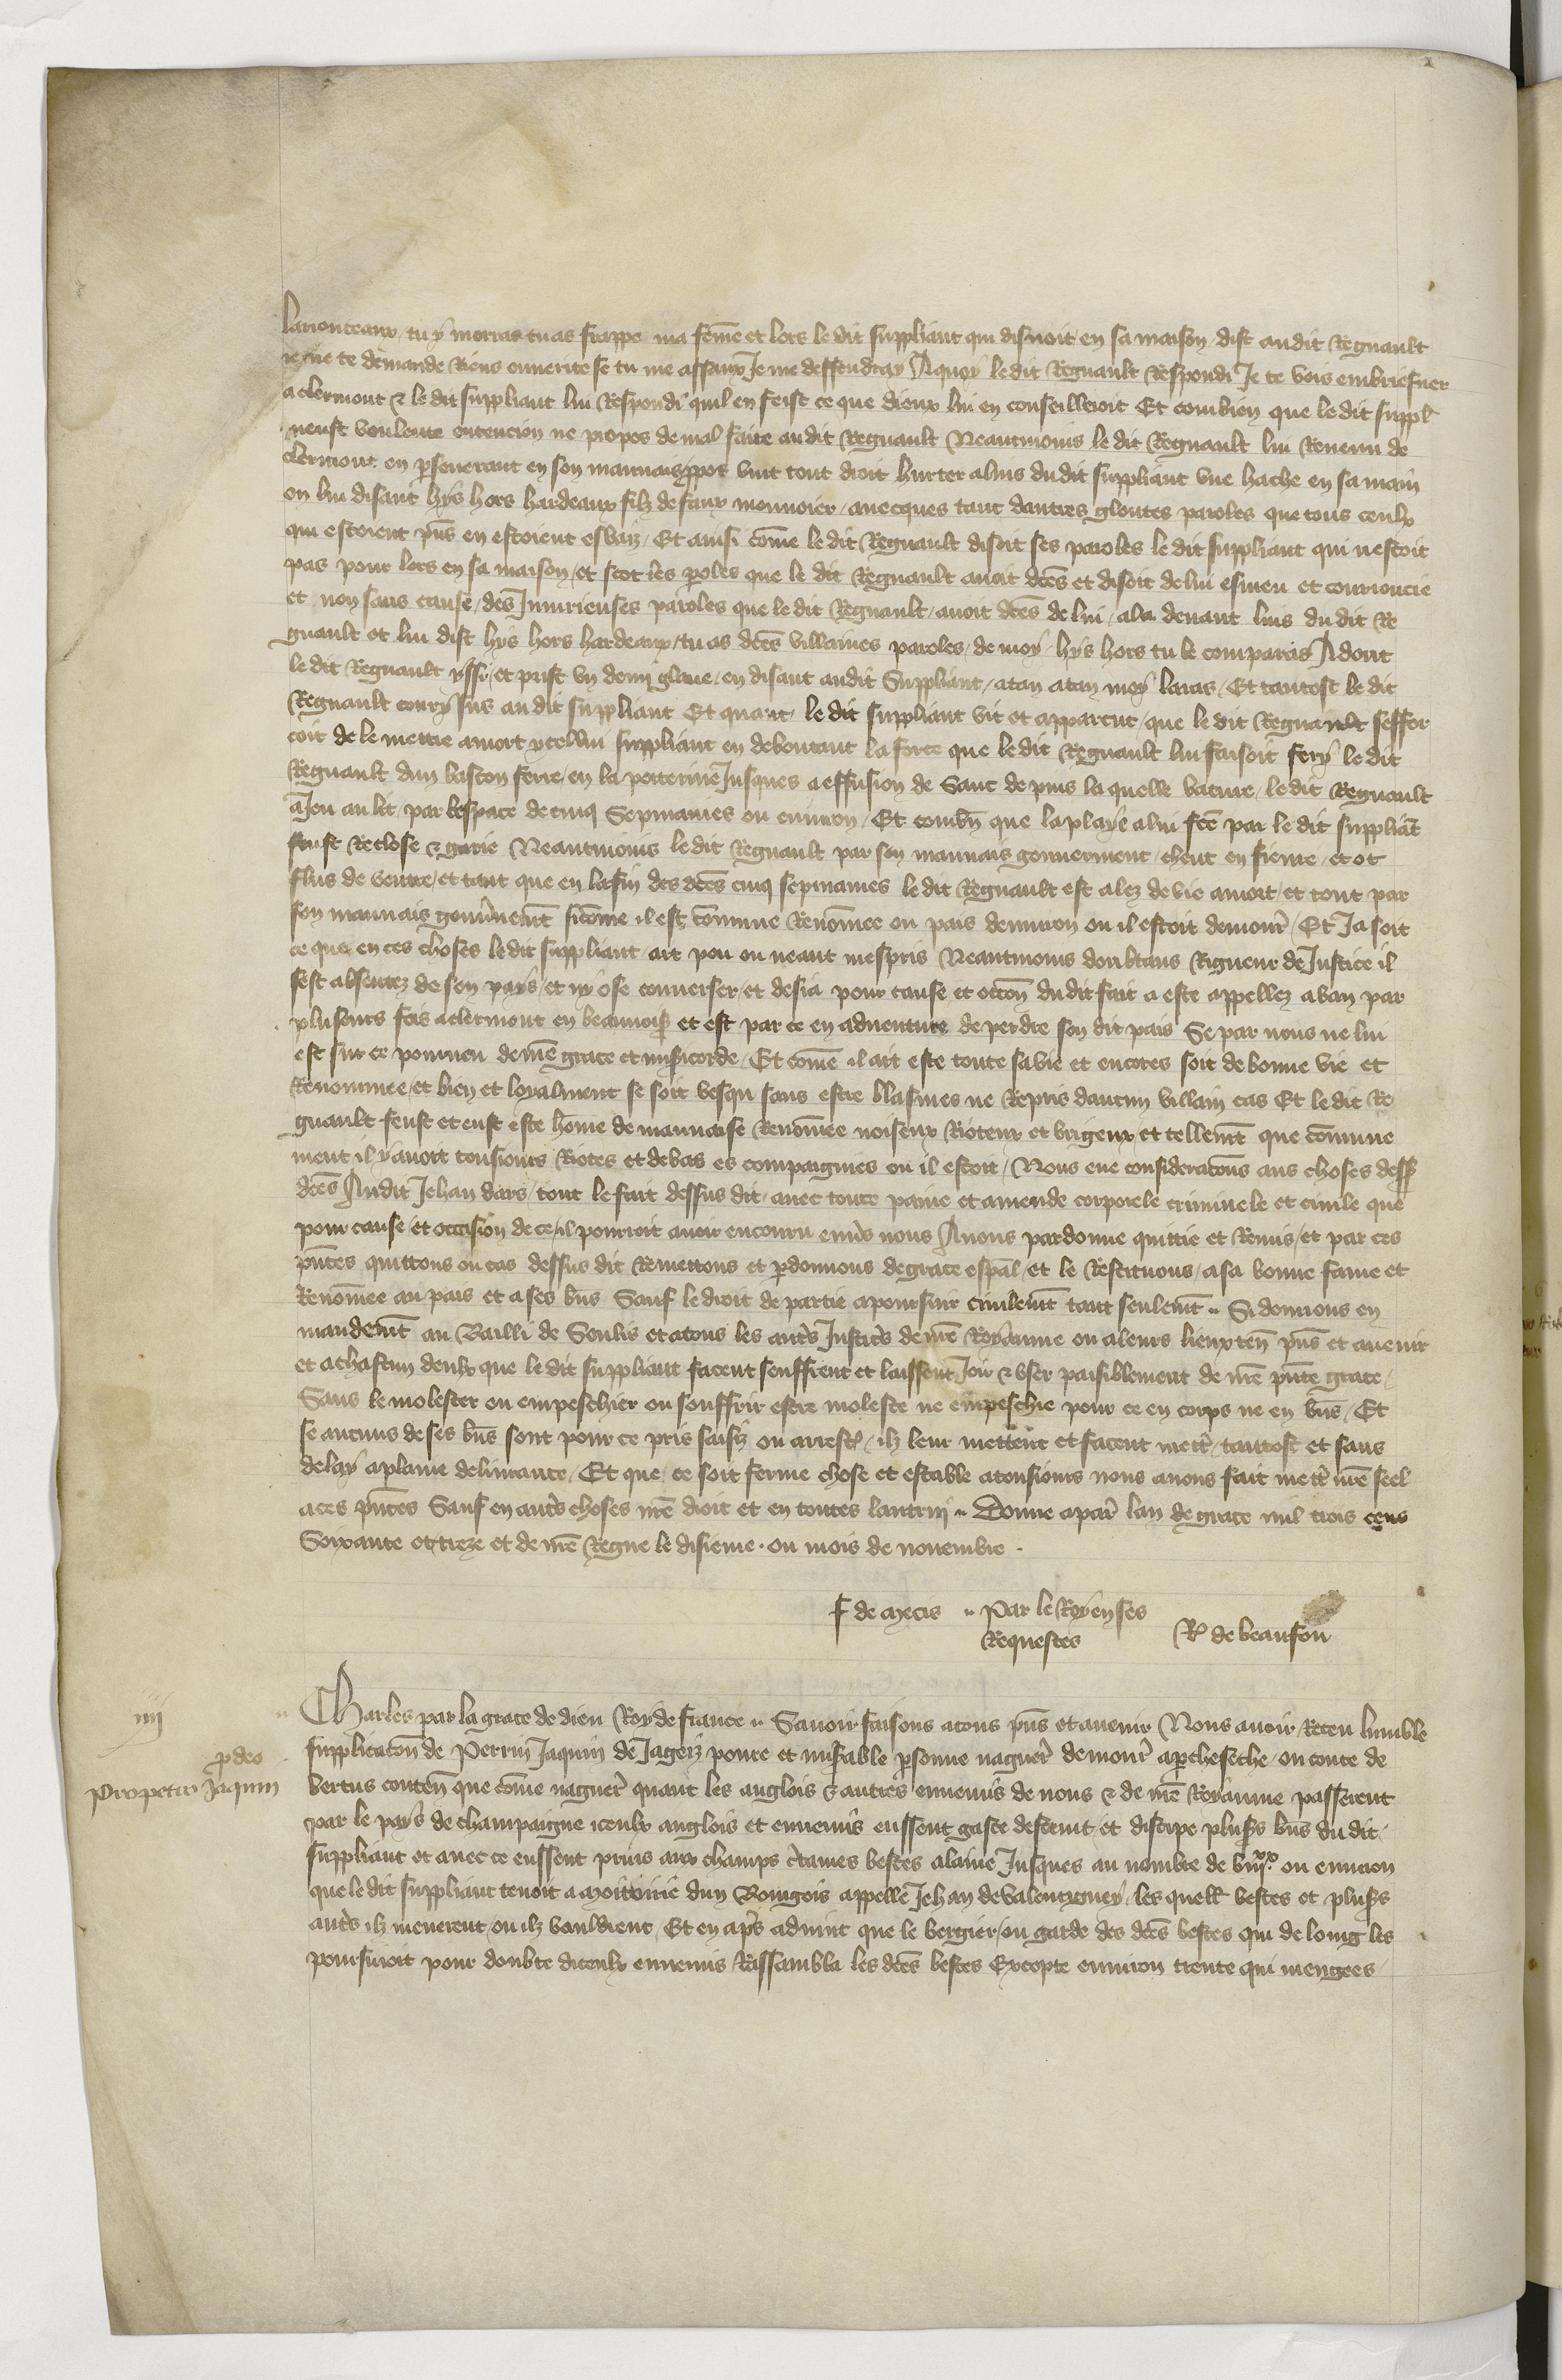 larronceaux tu y morras tu as frappe ma feme et lors le dit suppliant qui disnoit en sa maison dist au dit Regnault
je ne te demande Riens en verite se tu me assaux Je me deffendray A quoy le dit Regnault Respondi Je te vois embriefuer
a clermont & le dit suppliant lui Respondi quil en feist ce que dieux lui en conseilleroit Et combien que le dit suppl
neust voulente entencion ne propos de mal faire au dit Regnault Neantmoins le dit Regnault lui Revenu de
clermont en pseuerant en son mauuais ppos vint tout droit hurter a luis du dit suppliant vne hache en sa main
en lui disant hys hors hardeaux filz de faux monnoier auecques tant dautres gloutes paroles que tous ceulx
qui estoient pns en estoient esbaiz Et ainsi come le dit Regnault disoit ses paroles le dit suppliant qui nestoit
pas pour lors en sa maison et scot les poles que le dit Regnault auoit dces et disoit de lui esmeu et courroucie
et non sans cause des Iniurieuses paroles que le dit Regnault auoit dces de lui ala deuant luis du dit Re
gnault et lui dist hys hors hardeaux tu as dces villaines paroles de moy hys hors tu le comparras Adont
le dit Regnault yssi et prist vn demi glaue en disant au dit Suppliant atan atan moy laras Et tantost le dit
Regnault coury sus au dit suppliant Et quant le dit suppliant vit et apparceut que le dit Regnault seffor
coit de le mettre a mort ycellui suppliant en deboutant la force que le dit Regnault lui faisoit fery le dit
Regnault dun baston ferre en la potterine Jusques a effusion de Sanc de puis la quelle bature le dit Regnault
a Jeu au lit par lespace de cinq Sepmaines ou enuiron Et combn que la playe a lui fce par le dit suppliat
feust Reclose & garie Neantmoins le dit Regnault par son mauuais gouuerment cheut en fieure et ot
flus de ventre et tant que en la fin des dces cinq sepmaines le dit Regnault est alez de vie a mort et tout par
son mauuais gouunemt sicome il est comune Renomee ou pais denuiron ou il estoit demour Et Ja soit
ce que en ces choses le dit suppliant ait pou ou neant mespris Neantmoins doubtans Rigueur de Justice il
sest absentez de son pays et ny ose conuerser et desia pour cause et occon du dit fait a este appellez a ban par
plusieurs fois a clermont en beauuoisis et est par ce en aduenture de perdre son dit pais Se par nous ne lui
est sur ce pourueu de nre grace et misicorde Et come il ait este toute sa vie et encores soit de bonne vie et
Renommee et bien et loyalment se soit vesqu sans estre blasmes ne Repris daucun villain cas Et le dit Re
gnault feust et eust este home de mauuaise Renomee noiseux Rioteux et brigeux et tellemt que comune
ment il y auoit tousiours Riotes et debas es compaignies ou il estoit Nous eue consideracons aus choses dess
dces Au dit Jehan dars tout le fait dessus dit auec toute paine et amende corporele criminele et ciuile que
pour cause et occasion de ce il pourroit auoir encouru enuers nous Auons pardonne quittie et Remis et par ces
pntes quittons ou cas dessus dit Remettons et pdonnons de grace espal et le Restituons a sa bonne fame et
Renomee au pais et a ses bns Sauf le droit de partie a poursuir ciuilemt tant seulemt Si donnons en
mandemt au Bailli de Senlis et a tous les autrs Justicrs de nre Royaume ou a leurs lieuxten pns et auenir
et a chascun deulx que le dit suppliant facent seuffrent et laissent Joir & vser paisiblement de nre pnte grace
Sans le molester ou empeschier ou souffrir estre moleste ne empeschie pour ce en corps ne en bns Et
se aucuns de ses bns sont pour ce pris saisiz ou arrest ilz leur mettent et facent mettr tantost et sans
delay a plaine deliurance Et que ce soit ferme chose et estable a tousiours nous auons fait mettr nre seel
a ces pntes Sauf en autrs choses nre droit et en toutes lautrui Donne a par lan de grace mil trois cens
Soixante et treze et de nre Regne le disieme ou mois de nouembre
J de mecis Par le Roy en ses
Requestes R de beaufou
iiij
Charles par la grace de dieu Roy de france Sauoir faisons a tous pns et auenir Nous auoir Receu lumble
p deo
supplicacon de Perrin Jaquin de Jagerz poure et misable psonne naguer demour a pchesche ou conte de
Pro petro Jaquin
vertus conten que come naguer quant les anglois & autres ennemis de nous & de nre Royaume passerent
par le pays de champaigne iceulx anglois et ennemis eussent gaste destruit et discipe pluss bns du dit
suppliant et auec ce eussent prins aux champs ctaines bestes a laine Jusques au nombre de viijxx ou enuiron
que le dit suppliant tenoit a moittoirie dun Bourgois appelle Jehan de valentigney les quell bestes et pluss
autrs ilz menerent ou ilz vouldrent Et en aprs aduint que le bergier ou garde des dces bestes qui de loing les
poursuioit pour doubte diceulx ennemis Rassambla les dces bestes Excepte enuiron trente qui mengees